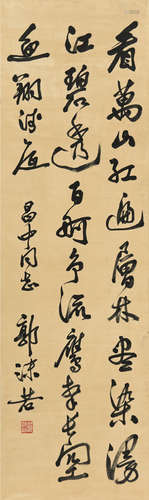 看萬山紅遍層林尽染漫
江碧透百舸争流鷹擊長空
魚翔淺底 昌中同志 郭沫若